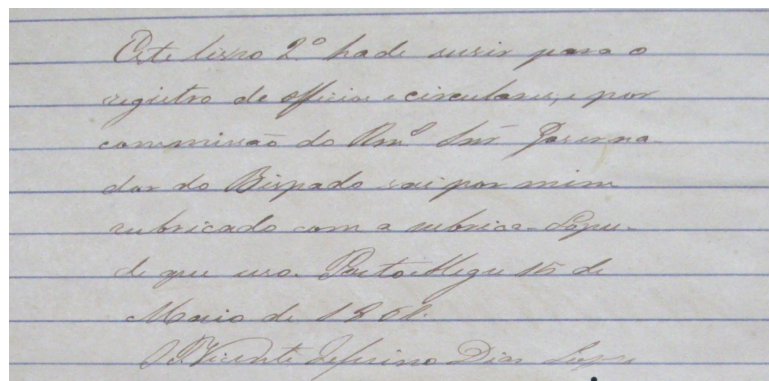 Este livro 2º hade servir para o
registro de officios e circulares, e por
commissão do Rmº Snr Governa-
dor do Bispado vai por mim
rubricado com a rubrica - Lopes -
de que uso. Porto Alegre 15 de
Maio de 1861.
Pe Vicente Zeferino Dias Lopes